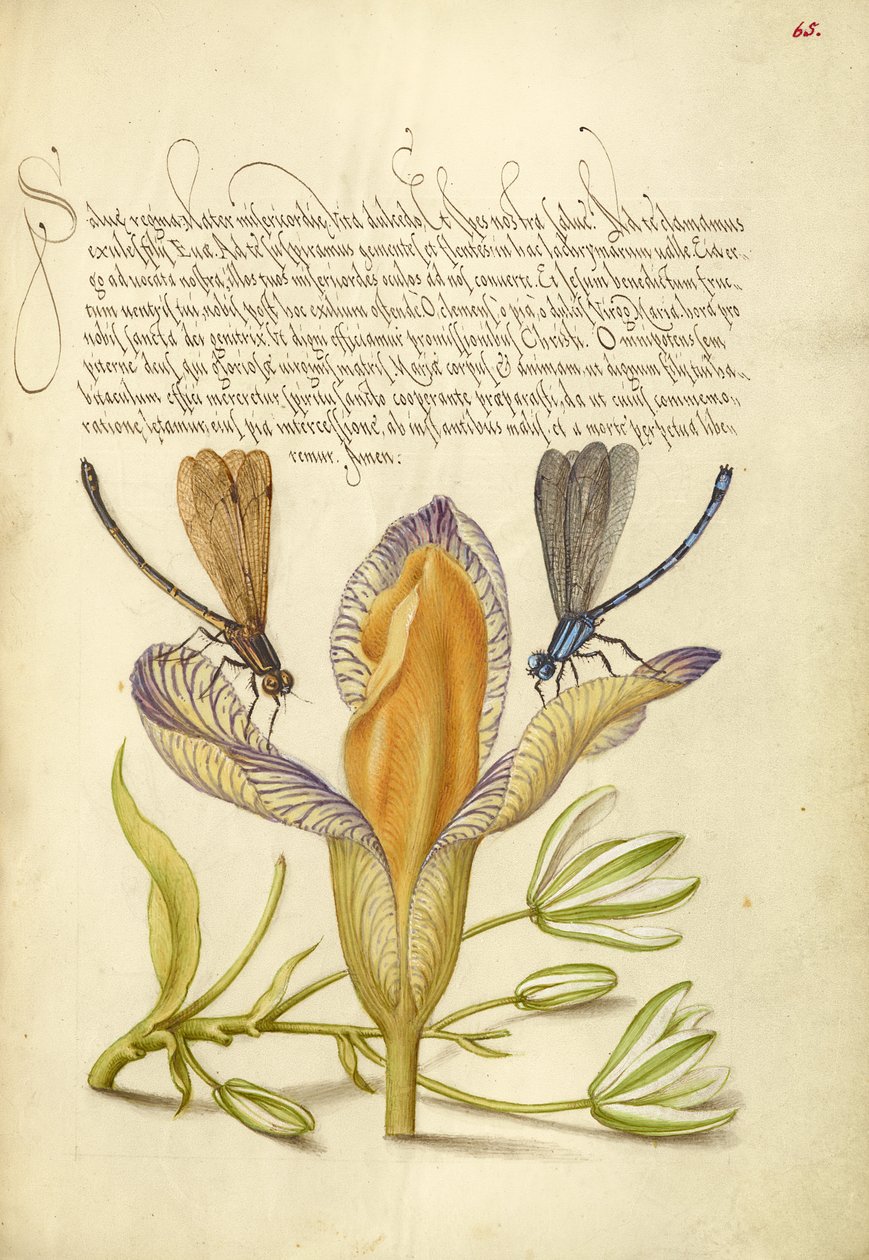 65.
Salue regina, Mater misericordie, Vita dulcedo, Et spes nostra salue. Ad te clamamus
exules filij Euæ. Ad te suspiramus gementes et flentes in hac lachrymarum ualle. Eia er-
go aduocata nostra, illos tuos misericordes oculos ad nos conuerte. Et Iesum benedictum fruc-
tum uentris tui, nobis post hoc exilium ostende. O clemens, o pia, o dulcis Virgo Maria. hora pro
nobis sancta dei genitrix. Vt digni efficiamur promissionibus Christi. Omnipotens sem
piterne deus qui gloriosæ uirginis matris Mariæ corpus & animam, ut dignum filij tui ha-
bitaculum effici mereretur, spiritu sancto cooperante præparasti, da ut cuius commemo-
ratione lętamur, eius pia intercessione, ab instantibus malis, et a morte perpetua libe-
remur. Amen: